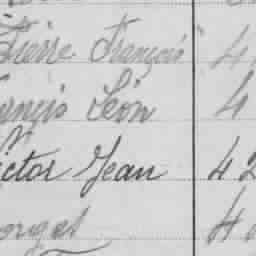 Pierre François 4
François Léon 4
Victor Jean 42
Georges 4